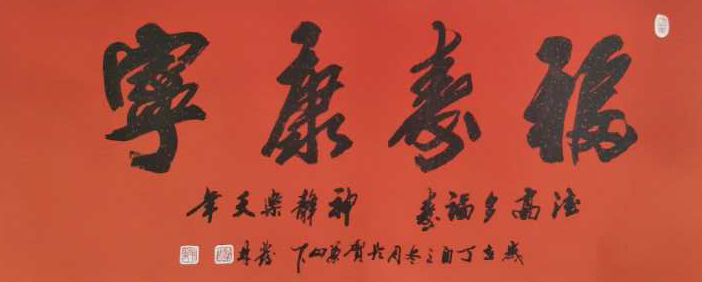 福壽康寧
德高多福壽 神靜樂天年
歲在丁酉之冬月於賀蘭山下